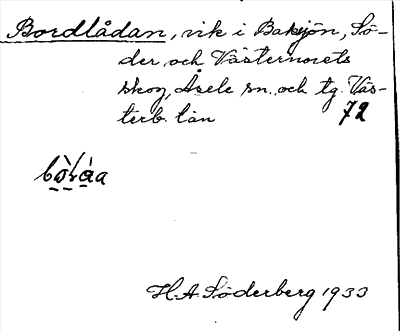 Bordlådan, vik i Baksjön, Sö-
der och Västernorets
skog, Åsele sn. och tg. Väs-
terb. län 72
H.A. Söderberg 1933